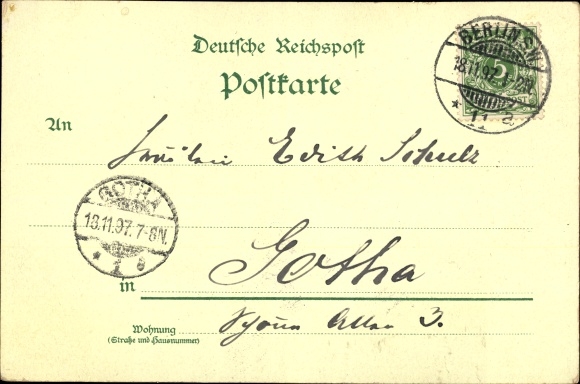 Deutsche Reichspost
Postkarte
BERLIN S.W.
18.11.97. 1-2N.
* 11 a
5
An Fräulein Edith Schulz
GOTHA
18.11.97. 7-8N.
* 1 e
in Gotha
Wohnung Schöne Allee 3.
(Straße und Hausnummer)